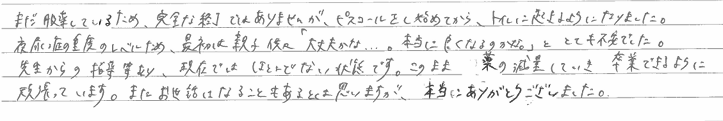 まだ服薬しているため、完全な終了ではありませんが、ピスコールをしはじめてから、トイレに起きるようになりました。
夜尿症の重度のレベルため、最初は親子供に「大丈夫かな…。本当に良くなるのかな。」ととても不安でした。
先生からの指導等より、現在ではほとんどでない状態です。このまま 薬の減量していき 卒業できるように
頑張っています。またお世話になることもあるとは思いますが、本当にありがとうございました。